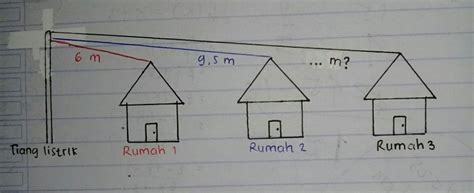 6 m 9,5 m ... m?
Tiang listrik Rumah 1 Rumah 2 Rumah 3